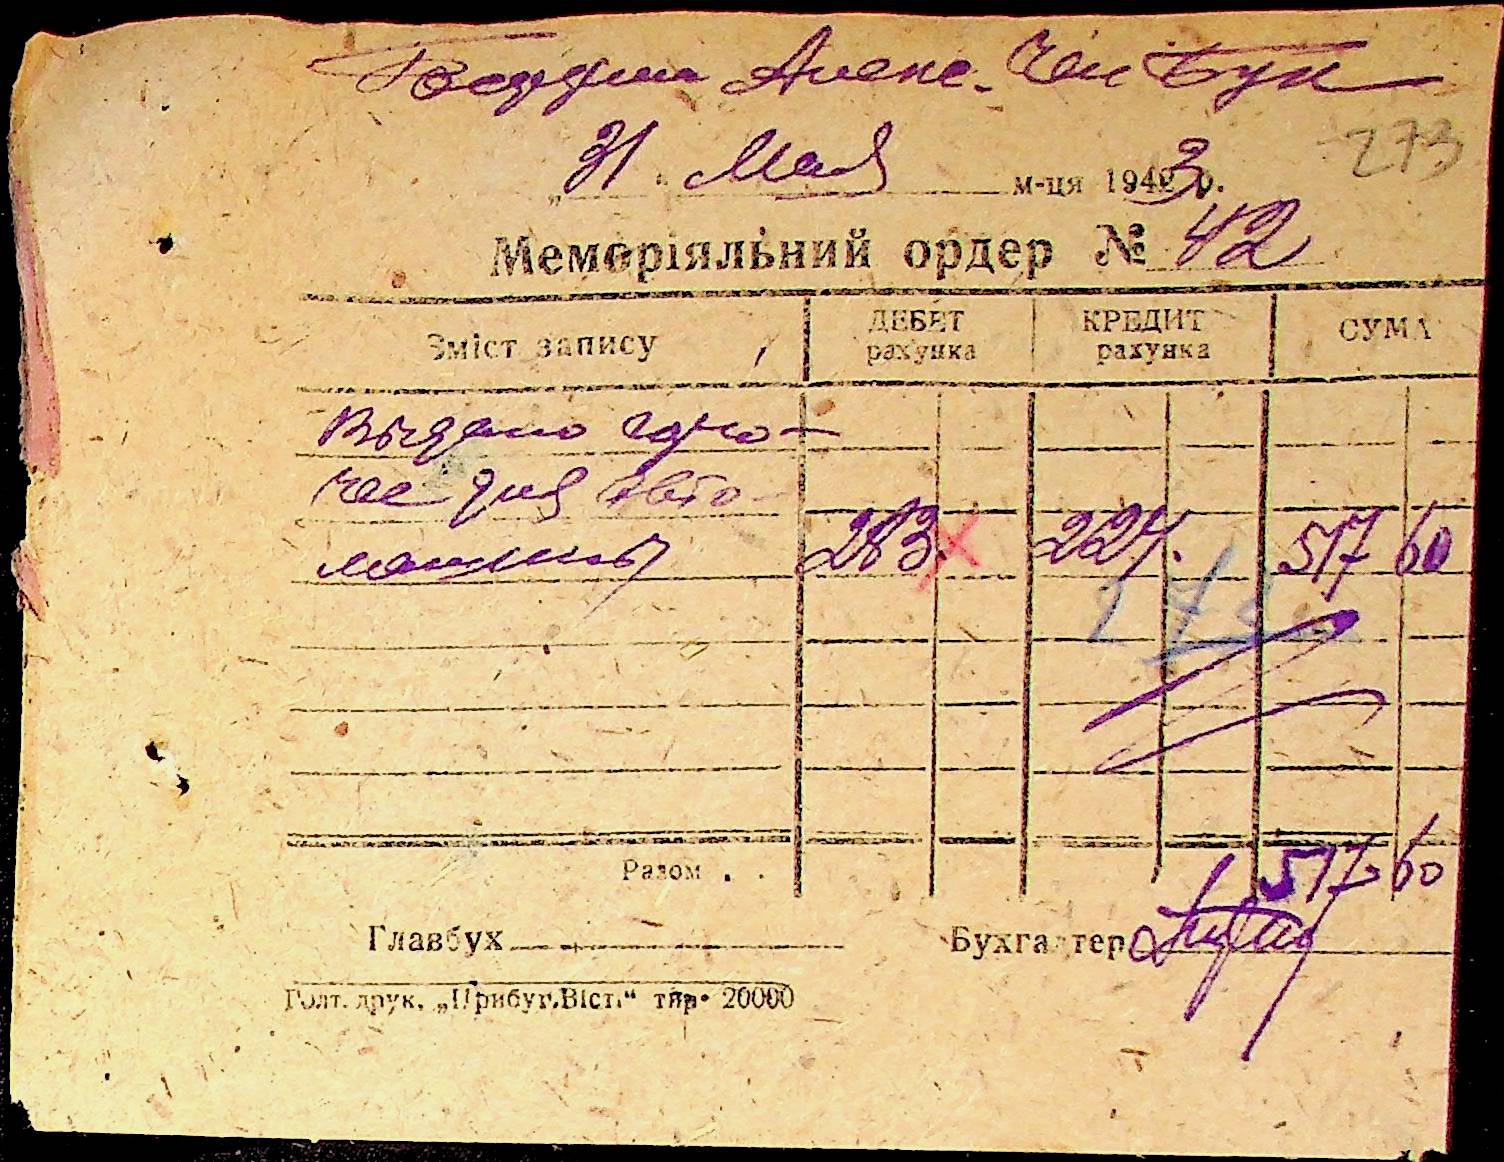 273
„31" Мая м-ця 1943 р.
Меморіяльний ордер № 42
Зміст запису
ДЕБЕТ рахунка
КРЕДИТ рахунка
СУМА
Выдано горю-
чее для авто-
машины 283. 224. 517 60
Разом . . 517 60
Главбух Бухгалтер
Голт. друк. „Прибуг.Вісті“ тир. 20000